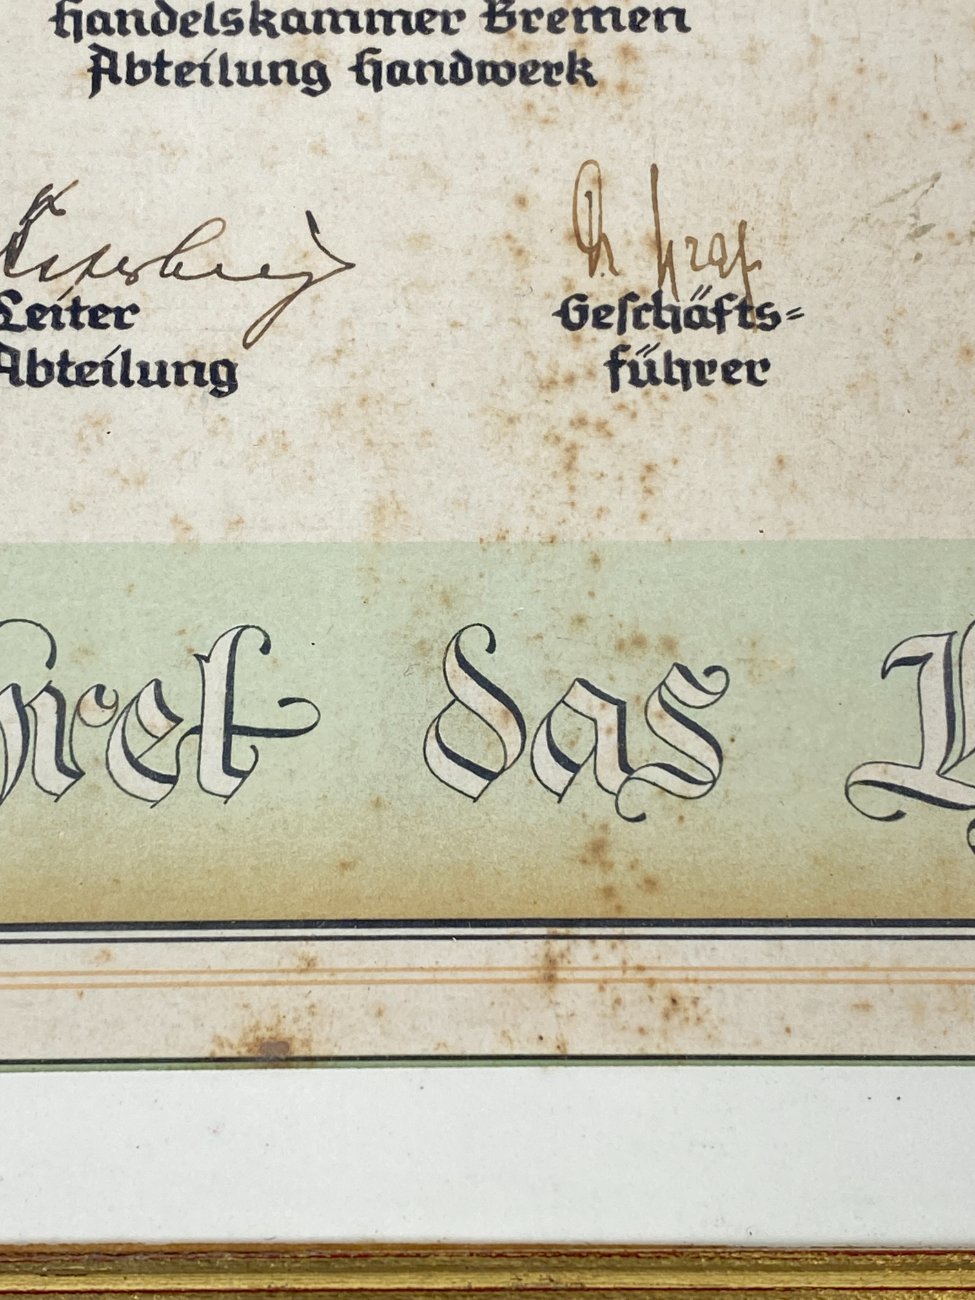 Handelskammer Bremen
Abteilung Handwerk
Leiter
Abteilung
Geschäfts=
führer
hret das